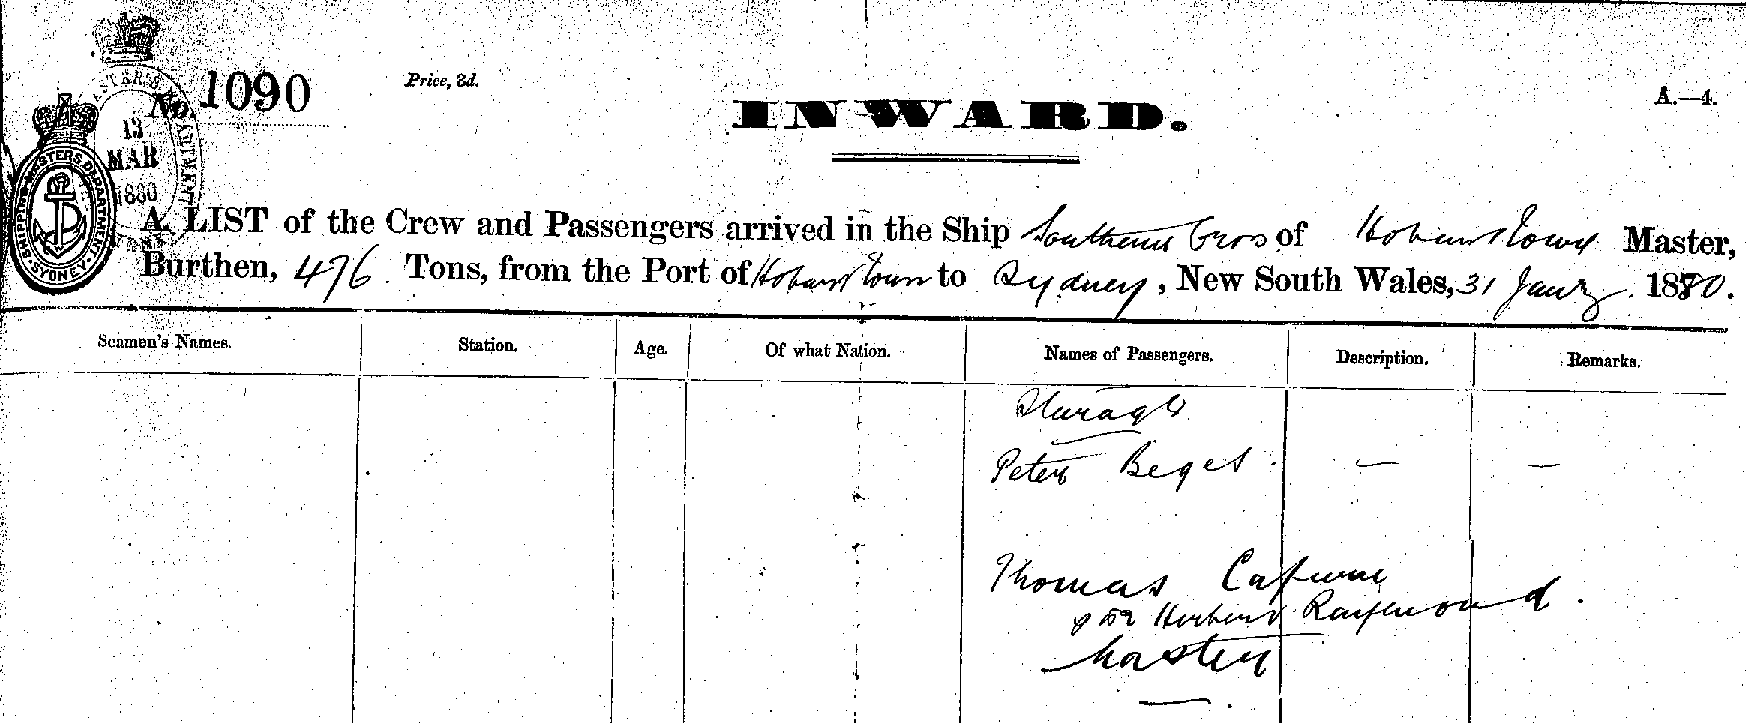 No. 1090
Price, 3d.
A.—4.
INWARD.
MASTER'S DEPARTMENT
13
MAR
1880
SHIPPING MASTERS DEPARTMENT
SYDNEY
A LIST of the Crew and Passengers arrived in the Ship Southern Cros of Hobart Town Master,
Burthen, 476 Tons, from the Port of Hobart Town to Sydney, New South Wales, 31 Jany 1880.
Seamen's Names. Station. Age. Of what Nation. Names of Passengers. Description. Remarks.
Peter — —
Thomas
Herbert Raymond
Master